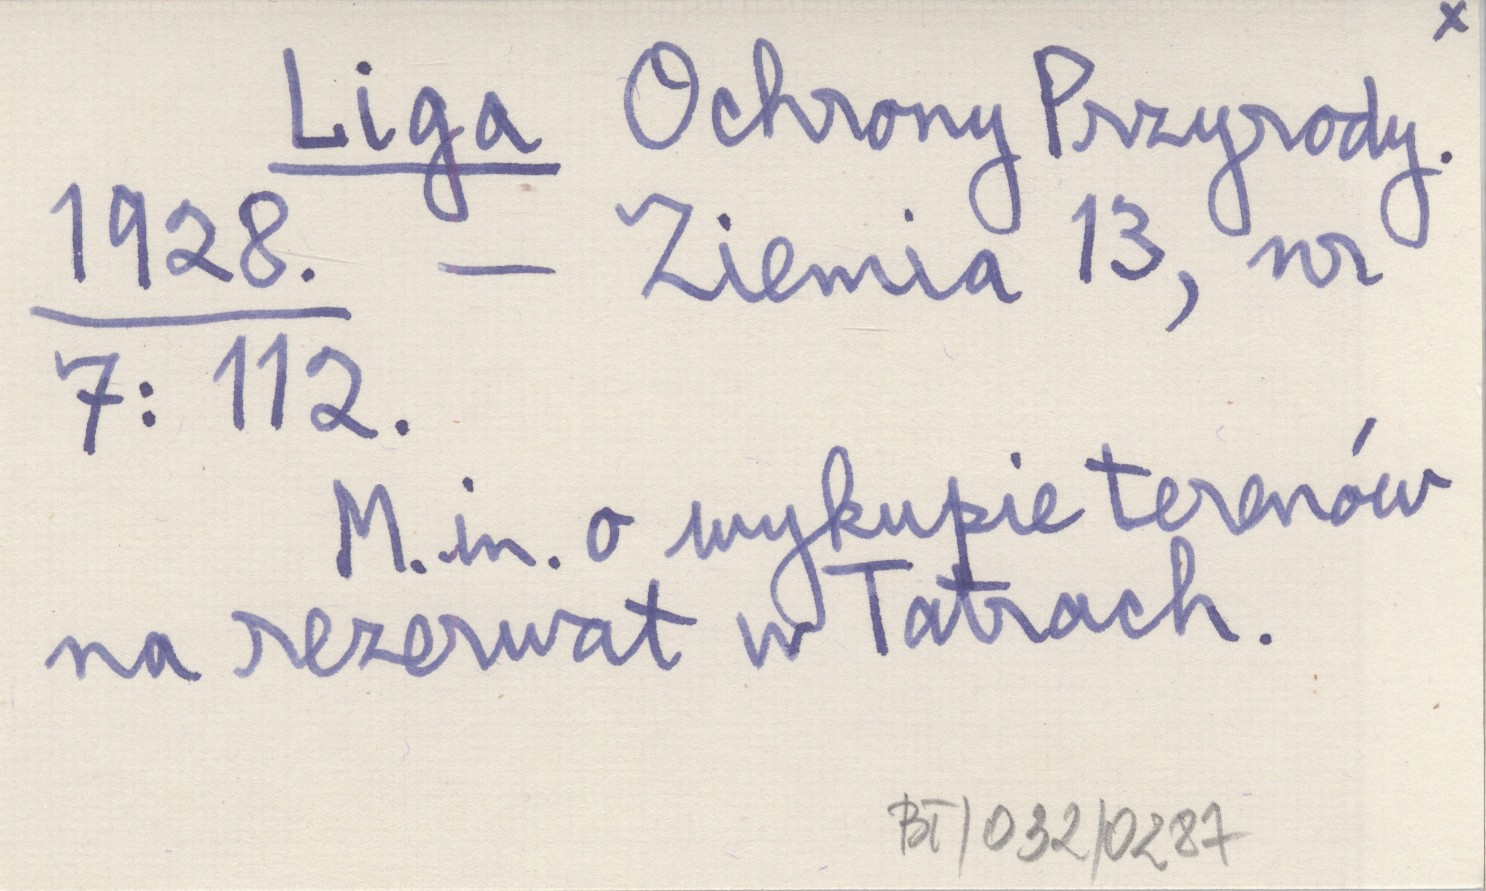 x
Liga Ochrony Przyrody.
1928. — Ziemia 13, nr
7: 112.
M.in. o wykupie terenów
na rezerwat w Tatrach.
BT/032/0287